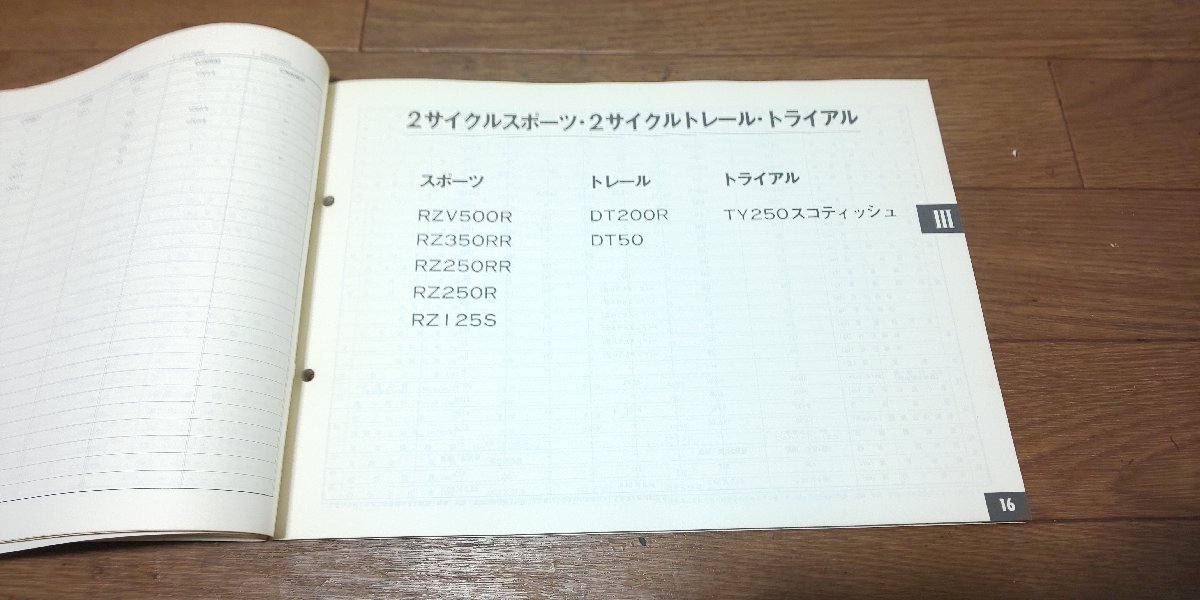 2サイクルスポーツ・2サイクルトレール・トライアル
スポーツ
RZV500R
RZ350RR
RZ250RR
RZ250R
RZ125S
トレール
DT200R
DT50
トライアル
TY250スコティッシュ
III
16